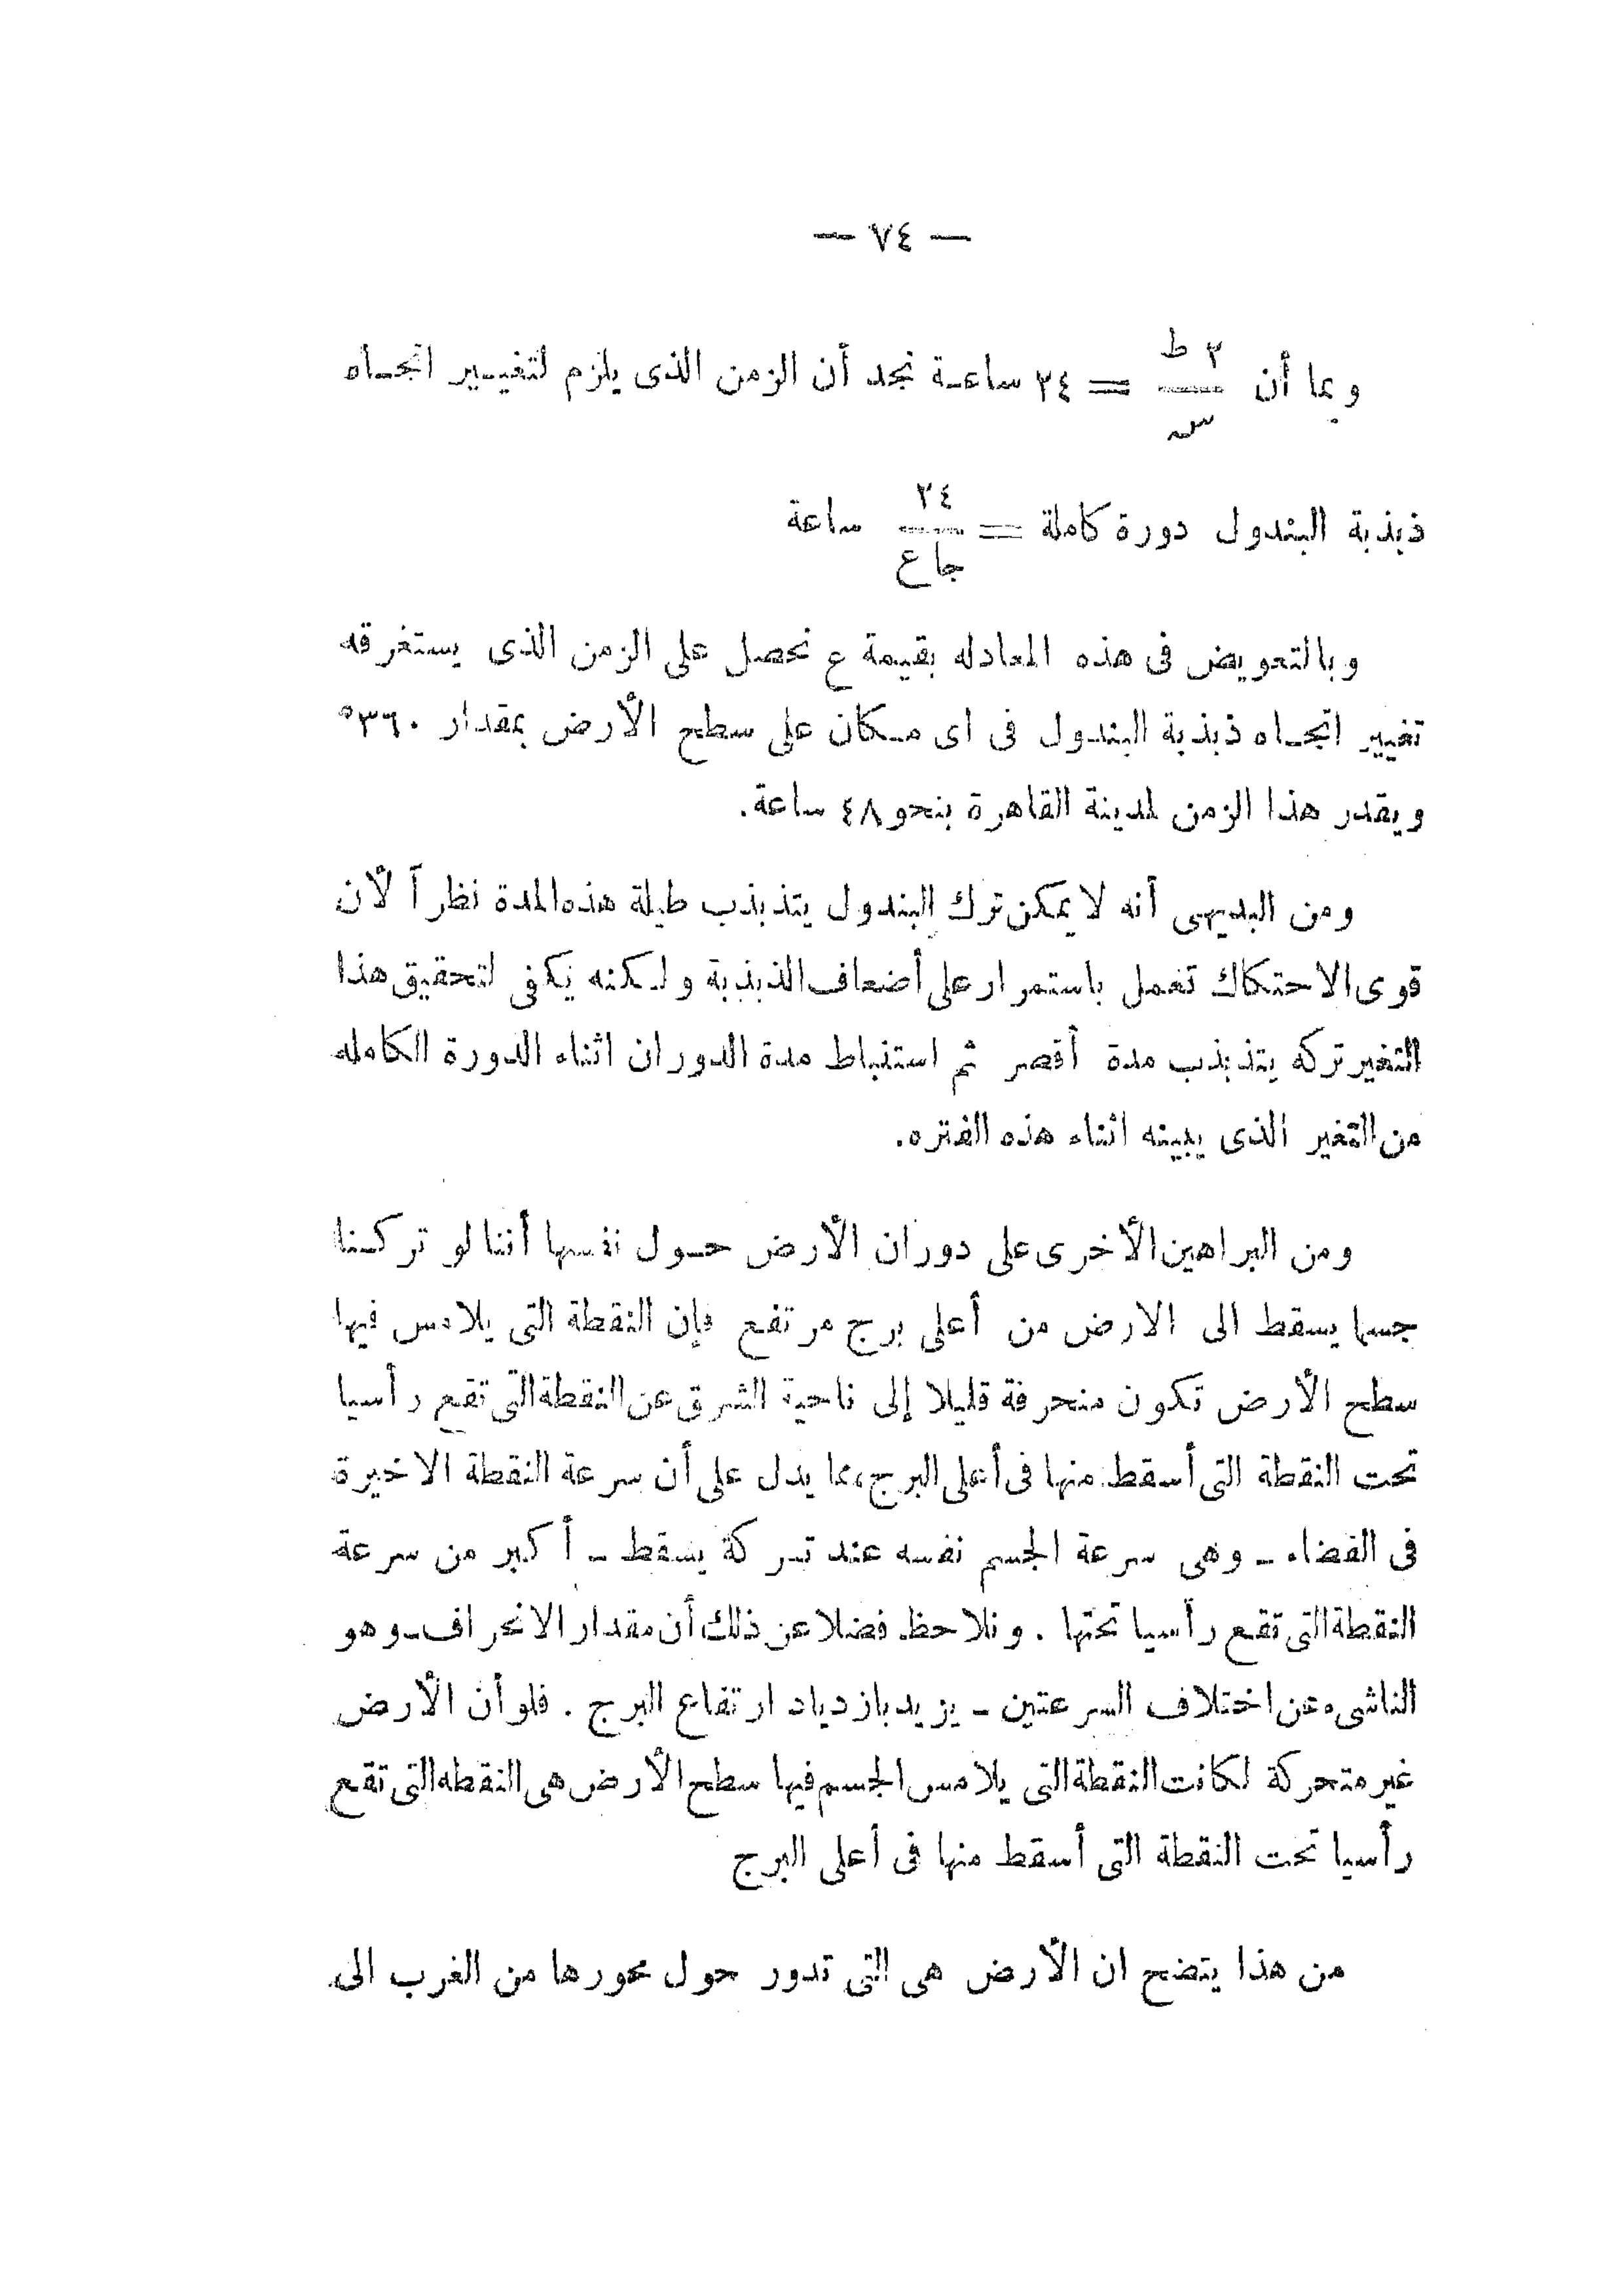 — ٧٤ —
وبما أن ٢ ط / س = ٢٤ ساعة نجد أن الزمن الذى يلزم لتغيير اتجاه
ذبذبة البندول دورة كاملة = ٢٤ / جا ع ساعة
وبالتعويض فى هذه المعادله بقيمة ع نحصل على الزمن الذى يستغرقه
تغيير اتجاه ذبذبة البندول فى اى مكان على سطح الأرض بمقدار ٣٦٠°
ويقدر هذا الزمن لمدينة القاهرة بنحو ٤٨ ساعة.
ومن البديهى أنه لا يمكن ترك البندول يتذبذب طيلة هذه المدة نظرآ لأن
قوى الاحتكاك تعمل باستمرار على أضعاف الذبذبة ولكنه يكفى لتحقيق هذا
التغير تركه يتذبذب مدة أقصر ثم استنباط مدة الدوران اثناء الدورة الكامله
من التغير الذى يبينه اثناء هذه الفتره.
ومن البراهين الأخرى على دوران الأرض حول نفسها أننا لو تركنا
جسما يسقط الى الارض من أعلى برج مرتفع فإن النقطة التى يلامس فيها
سطح الأرض تكون منحرفة قليلا إلى ناحية الشرق عن النقطة التى تقع رأسيا
تحت النقطة التى أسقط منها فى أعلى البرج، مما يدل على أن سرعة النقطة الاخيرة
فى الفضاء - وهى سرعة الجسم نفسه عند تركة يسقط - أكبر من سرعة
النقطة التى تقع رأسيا تحتها . ونلاحظ فضلا عن ذلك أن مقدار الانحراف - وهو
الناشىء عن اختلاف السرعتين - يزيد بازدياد ارتفاع البرج . فلو أن الأرض
غير متحركة لكانت النقطة التى يلامس الجسم فيها سطح الأرض هى النقطه التى تقع
رأسيا تحت النقطة التى أسقط منها فى أعلى البرج
من هذا يتضح ان الأرض هى التى تدور حول محورها من الغرب الى